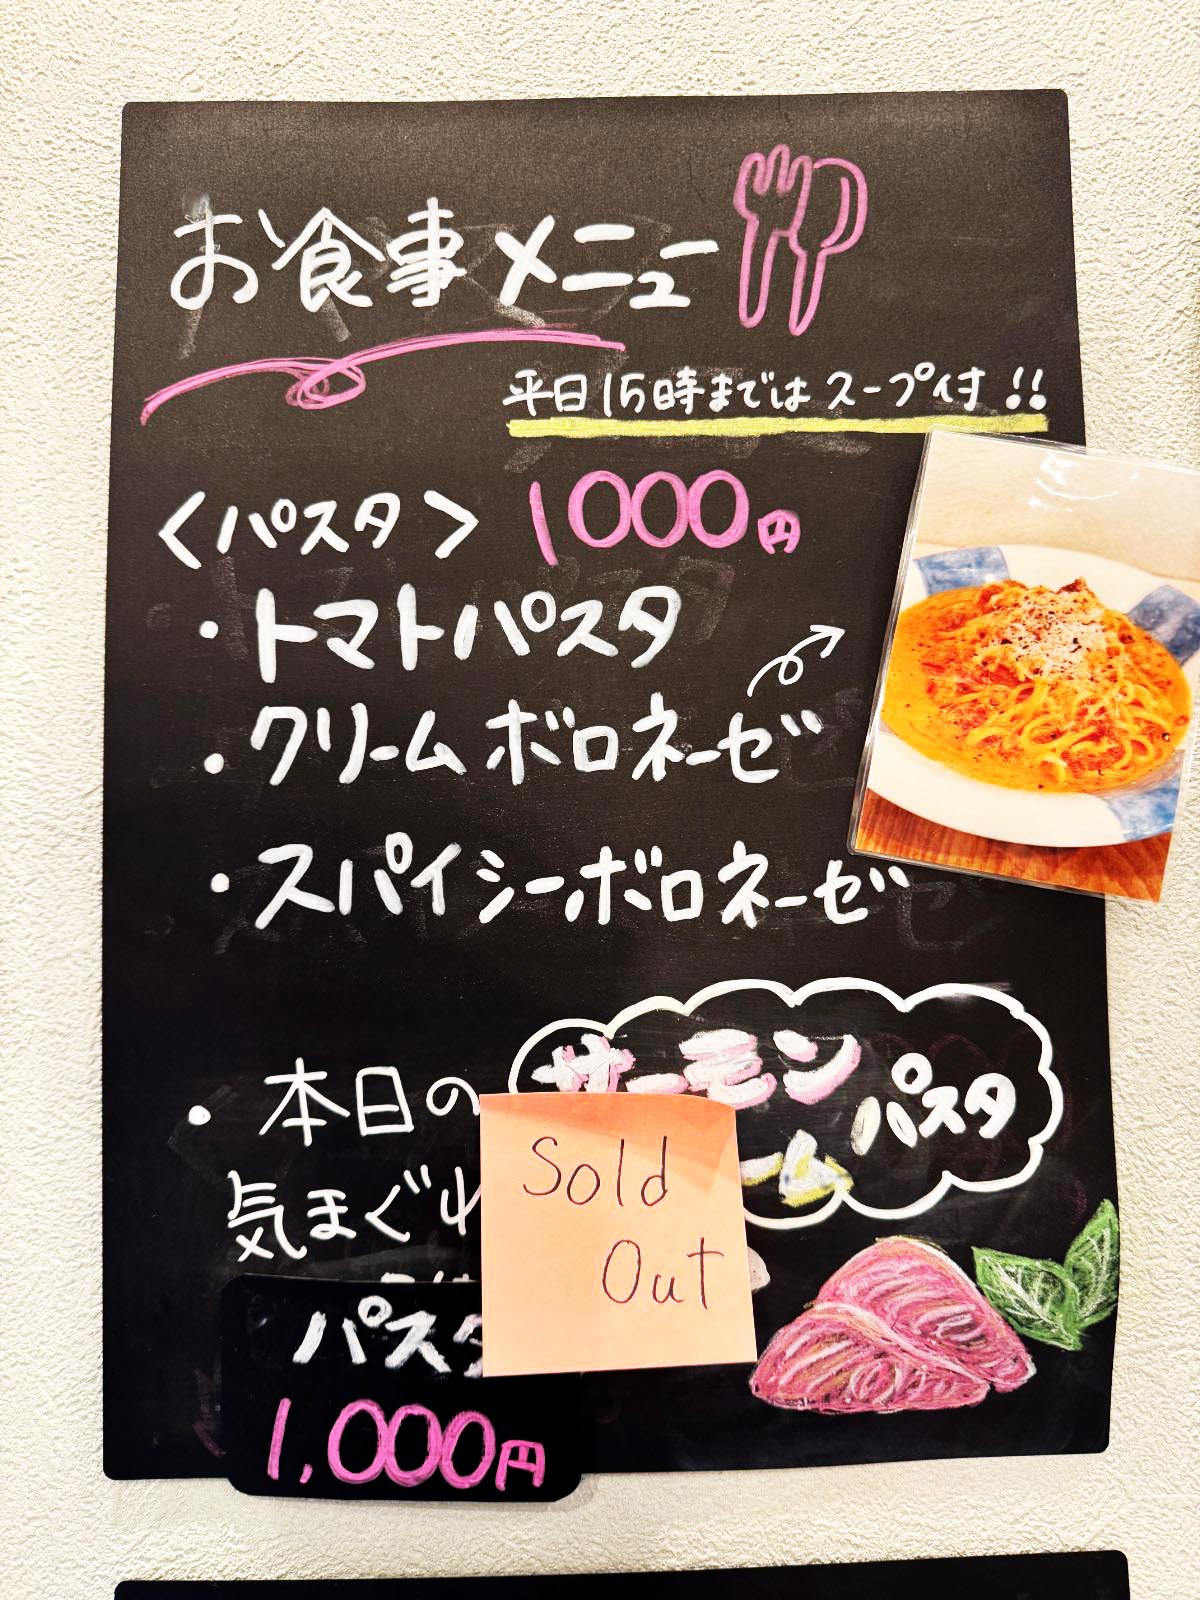 お食事メニュー
平日15時まではスープ付!!
<パスタ> 1000円
・トマトパスタ
・クリームボロネーゼ
・スパイシーボロネーゼ
サーモン
・本日の
パスタ
ーム
気まぐれ
Sold
Out
パスタ
1,000円